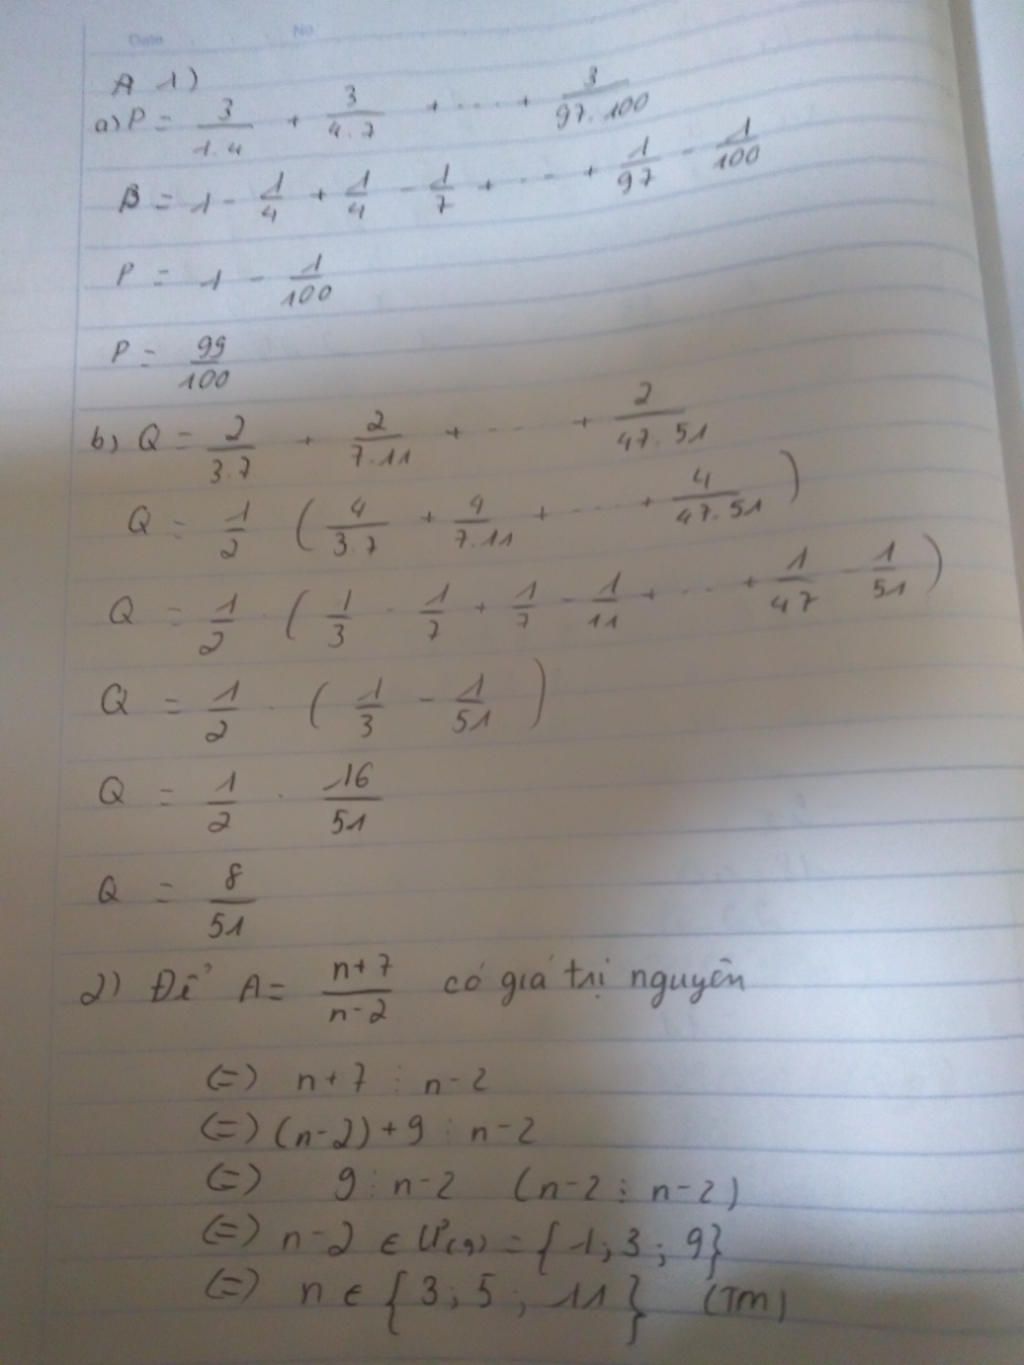 Date No
A 1)
a) P = 3/1.4 + 3/4.7 + ... + 3/97.100
B = 1 - 1/4 + 1/4 - 1/7 + ... + 1/97 - 1/100
P = 1 - 1/100
P = 99/100
b) Q = 2/3.7 + 2/7.11 + ... + 2/47.51
Q = 1/2 (4/3.7 + 4/7.11 + ... + 4/47.51)
Q = 1/2 . (1/3 - 1/7 + 1/7 - 1/11 + ... + 1/47 - 1/51)
Q = 1/2 . (1/3 - 1/51)
Q = 1/2 . 16/51
Q = 8/51
2) Để A = n+7/n-2 có giá trị nguyên
(=) n+7 ⋮ n-2
(=) (n-2)+9 ⋮ n-2
(=) 9 ⋮ n-2 (n-2 ⋮ n-2)
(=) n-2 ∈ Ư(9) = {1; 3; 9}
(=) n ∈ {3; 5; 11} (TM)